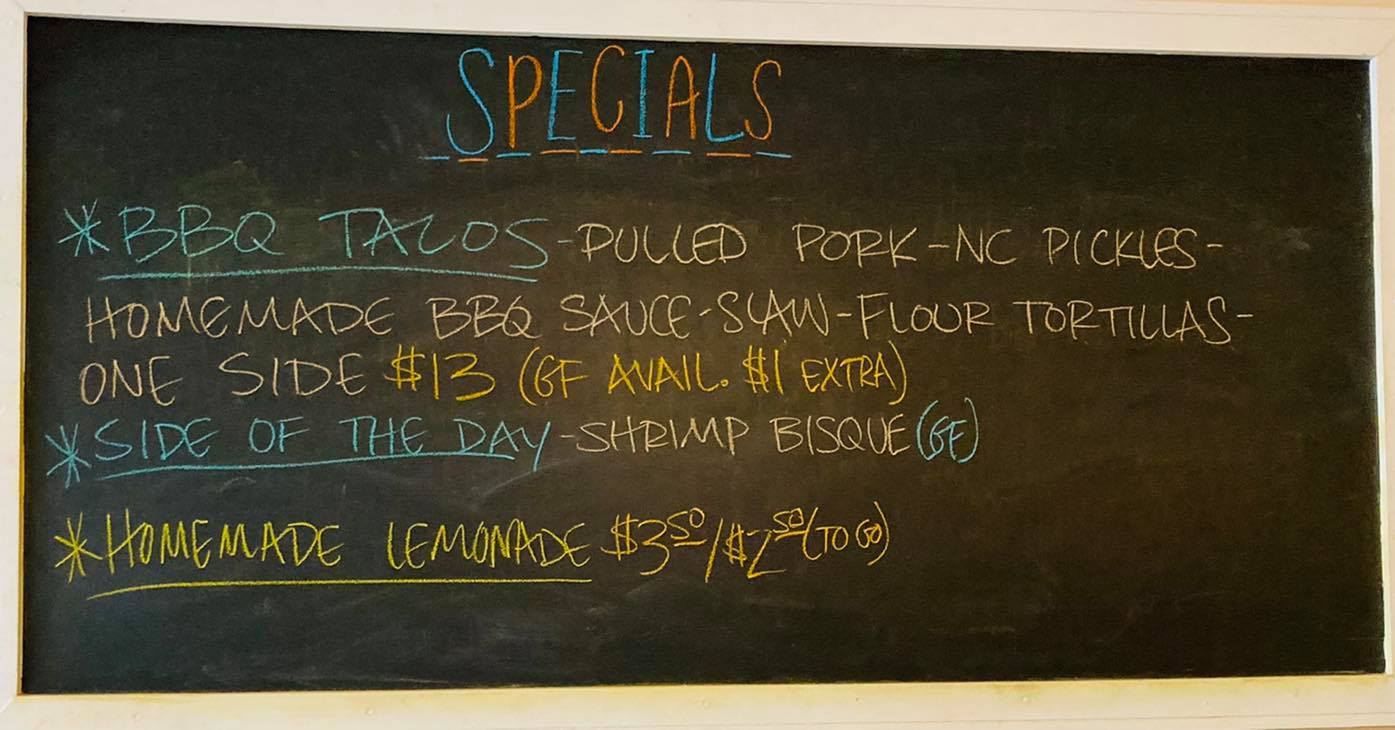 SPECIALS
*BBQ TACOS-PULLED PORK-NC PICKLES-
HOMEMADE BBQ SAUCE-SLAW-FLOUR TORTILLAS-
ONE SIDE $13 (GF AVAIL. $1 EXTRA)
*SIDE OF THE DAY-SHRIMP BISQUE (GF)
*HOMEMADE LEMONADE $3.50/$2.50 (TO GO)